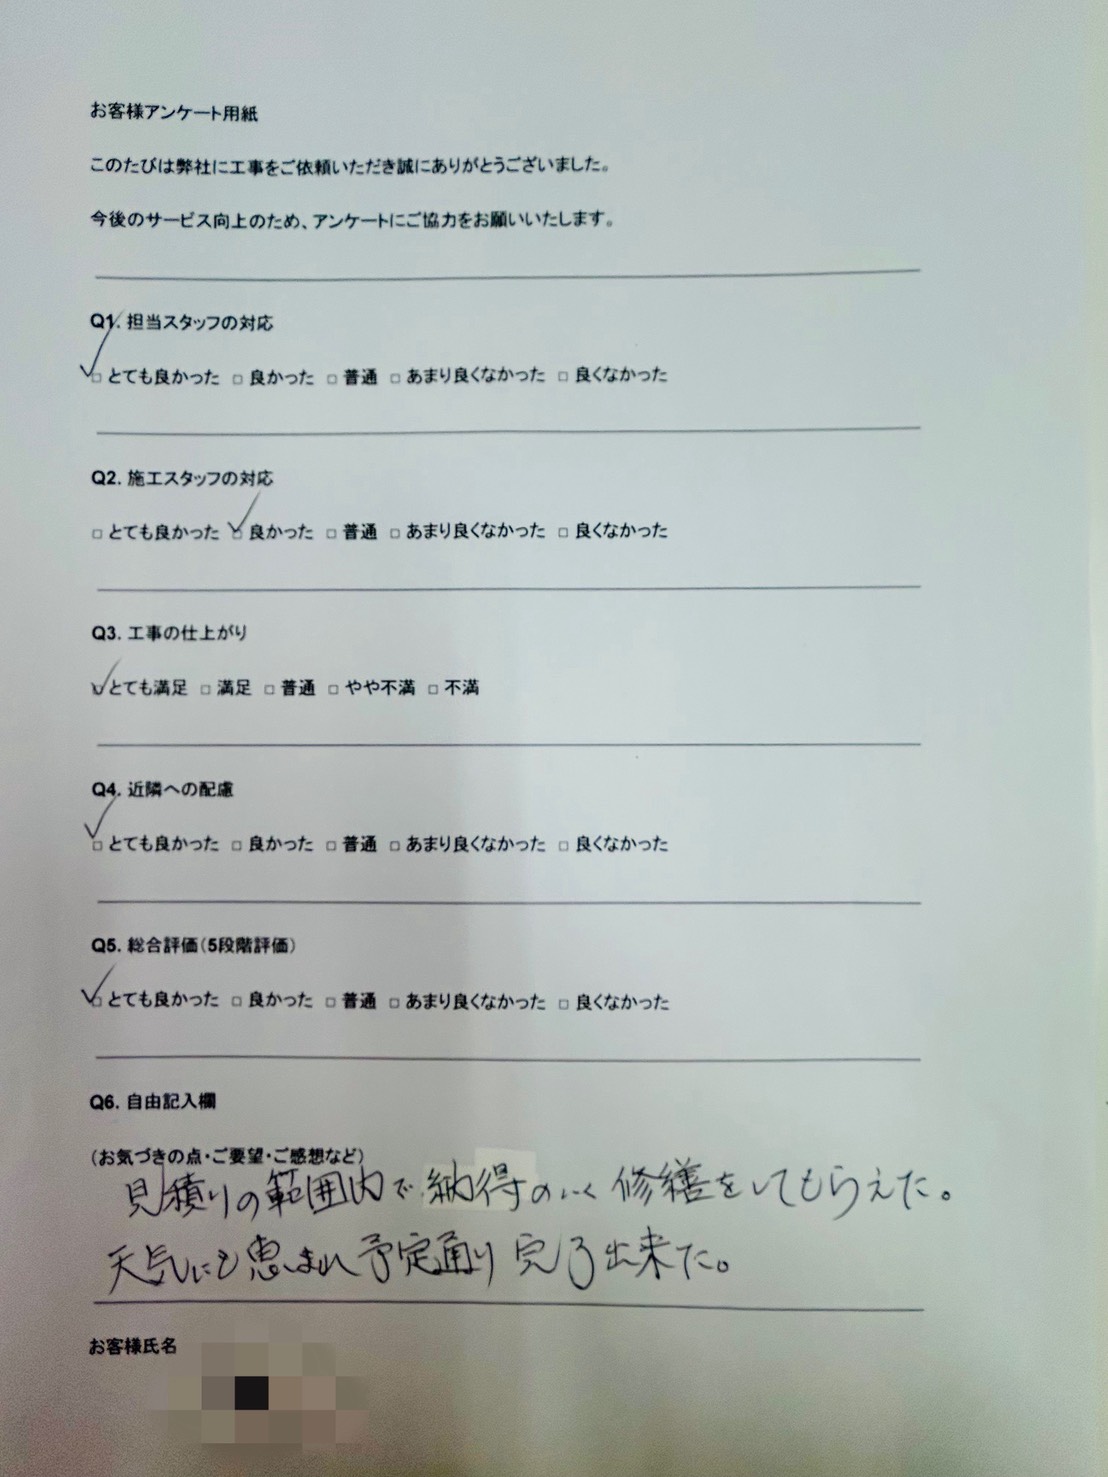 お客様アンケート用紙
このたびは弊社に工事をご依頼いただき誠にありがとうございました。
今後のサービス向上のため、アンケートにご協力をお願いいたします。
Q1. 担当スタッフの対応
□ とても良かった □ 良かった □ 普通 □ あまり良くなかった □ 良くなかった
Q2. 施工スタッフの対応
□ とても良かった □ 良かった □ 普通 □ あまり良くなかった □ 良くなかった
Q3. 工事の仕上がり
□ とても満足 □ 満足 □ 普通 □ やや不満 □ 不満
Q4. 近隣への配慮
□ とても良かった □ 良かった □ 普通 □ あまり良くなかった □ 良くなかった
Q5. 総合評価(5段階評価)
□ とても良かった □ 良かった □ 普通 □ あまり良くなかった □ 良くなかった
Q6. 自由記入欄
(お気づきの点・ご要望・ご感想など)
見積りの範囲内で納得のいく修繕をしてもらえた。
天気にも恵まれ予定通り完了出来た。
お客様氏名